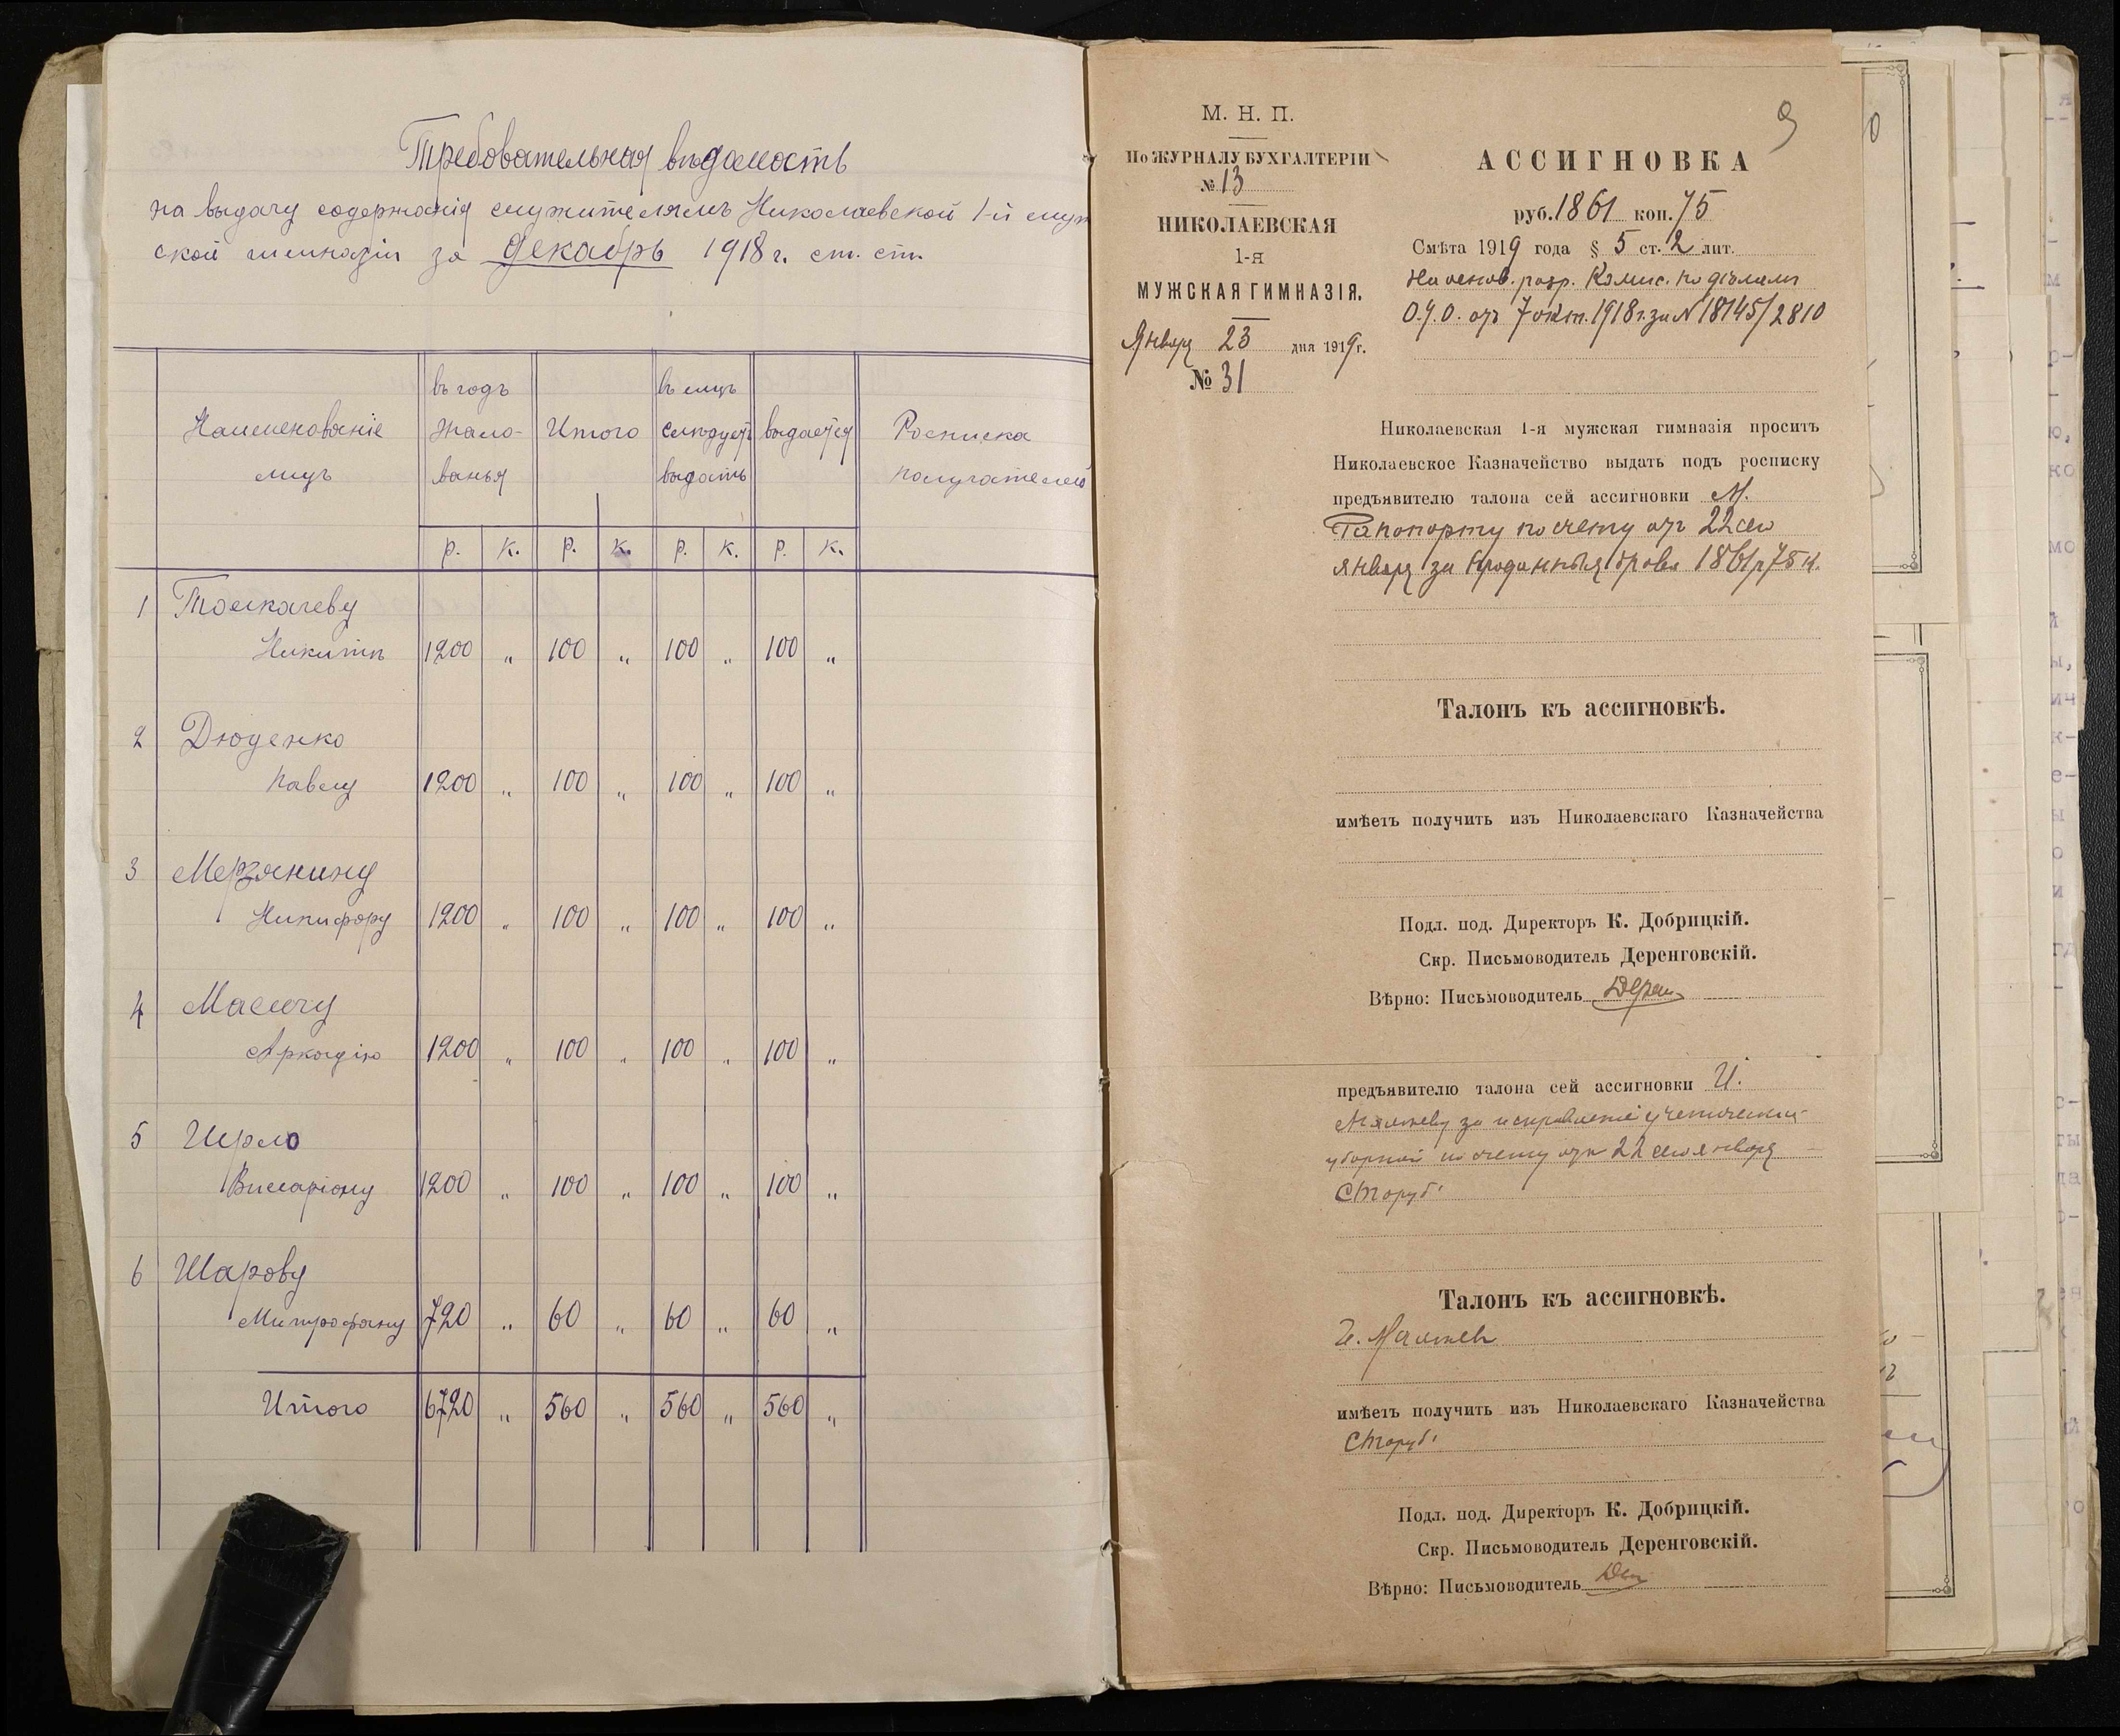 Требовательная вѣдомость
на выдачу содержанія служителямъ Николаевской 1-й муж
ской гимназіи за декабрь 1918 г. ст. ст.
Наименованіе лицъ
въ годъ жало-ванья
Итого
въ мѣсяцъ слѣдуетъ выдать
выдается
Росписка получателей
р. к. р. к. р. к. р. к.
1 Толкачеву
Никитѣ 1200 „ 100 „ 100 „ 100 „
2 Дюденко
Павлу 1200 „ 100 „ 100 „ 100 „
3 Мерзянину
Никифору 1200 „ 100 „ 100 „ 100 „
4
Аркадію 1200 „ 100 „ 100 „ 100 „
5
Виссаріону 1200 „ 100 „ 100 „ 100 „
6 Шарову
Митрофану 720 „ 60 „ 60 „ 60 „
Итого 6720 „ 560 „ 560 „ 560 „
9
М. Н. П.
По ЖУРНАЛУ БУХГАЛТЕРІИ
№ 13
НИКОЛАЕВСКАЯ
1-я
МУЖСКАЯ ГИМНАЗІЯ.
Января 23 дня 1919 г.
№ 31
АССИГНОВКА
руб. 1861 коп. 75
Смѣта 1919 года § 5 ст. 2 лит.
На основ. разр. Комис. по дѣламъ
О.У.О. отъ 7 окт. 1918 г. за № 18145/2810
Николаевская 1-я мужская гимназія проситъ
Николаевское Казначейство выдать подъ росписку
предъявителю талона сей ассигновки М.
Рапопорту по счету отъ 22 сего
января за проданныя дрова 1861 р 75 к.
Талонъ къ ассигновкѣ.
имѣетъ получить изъ Николаевскаго Казначейства
Подл. под. Директоръ К. Добрицкій.
Скр. Письмоводитель Деренговскій.
Вѣрно: Письмоводитель
предъявителю талона сей ассигновки И.
за исправленіе ученической
уборной по счету отъ 22 сего января
Сто руб.
Талонъ къ ассигновкѣ.
И.
имѣетъ получить изъ Николаевскаго Казначейства
Сто руб.
Подл. под. Директоръ К. Добрицкій.
Скр. Письмоводитель Деренговскій.
Вѣрно: Письмоводитель